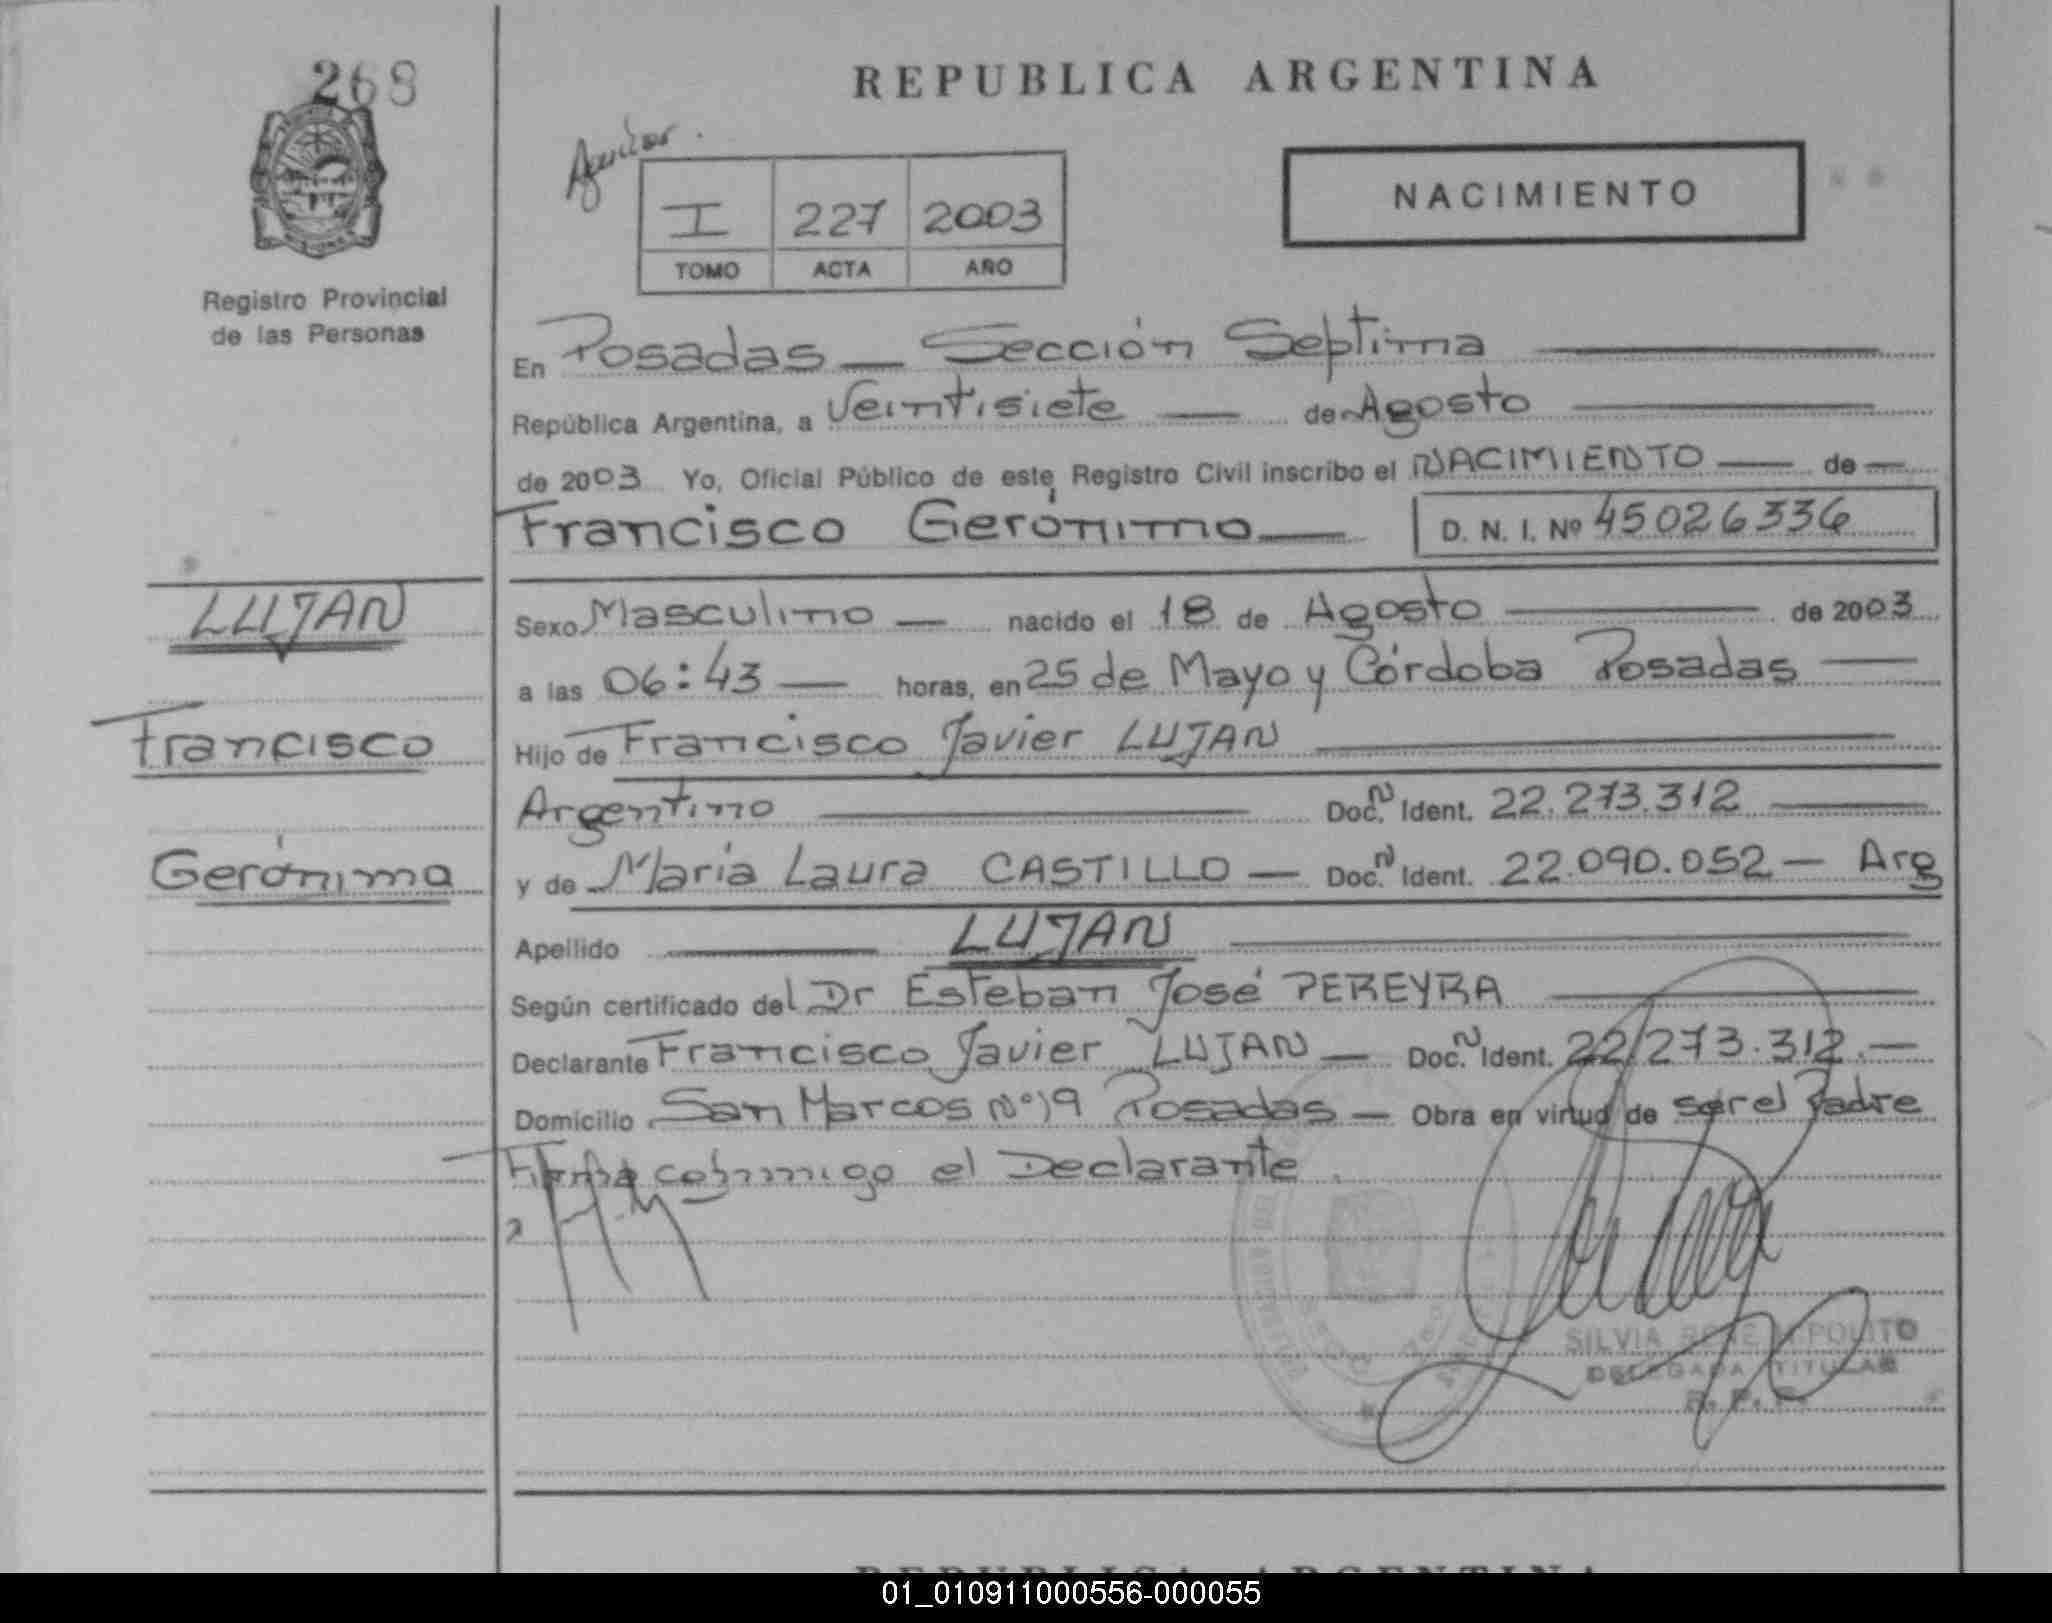 268
REPUBLICA ARGENTINA
NACIMIENTO
I 227 2003
TOMO ACTA AÑO
Registro Provincial
de las Personas
En Posadas — Sección Septima
República Argentina, a Veintisiete — de Agosto
de 2003 Yo, Oficial Público de este Registro Civil inscribo el NACIMIENTO — de —
Francisco Gerónimo — D. N. I. Nº 45026336
LUJAN
Sexo Masculino — nacido el 18 de Agosto — de 2003
a las 06:43 — horas, en 25 de Mayo y Córdoba Posadas —
Francisco
Hijo de Francisco Javier LUJAN
Argentino — Doc. N Ident. 22.273.312 —
Gerónimo
y de María Laura CASTILLO — Doc. N Ident. 22.090.052 — Arg
Apellido — LUJAN —
Según certificado del Dr Esteban José PEREYRA
Declarante Francisco Javier LUJAN — Doc. N Ident. 22.273.312.—
Domicilio San Marcos Nº 19 Posadas — Obra en virtud de ser el Padre
Firma conmigo el Declarante.
SILVIA RENE HIPOLITO
DELEGADA TITULAR
R. P. P.
REPUBLICA ARGENTINA
01_010911000556-000055